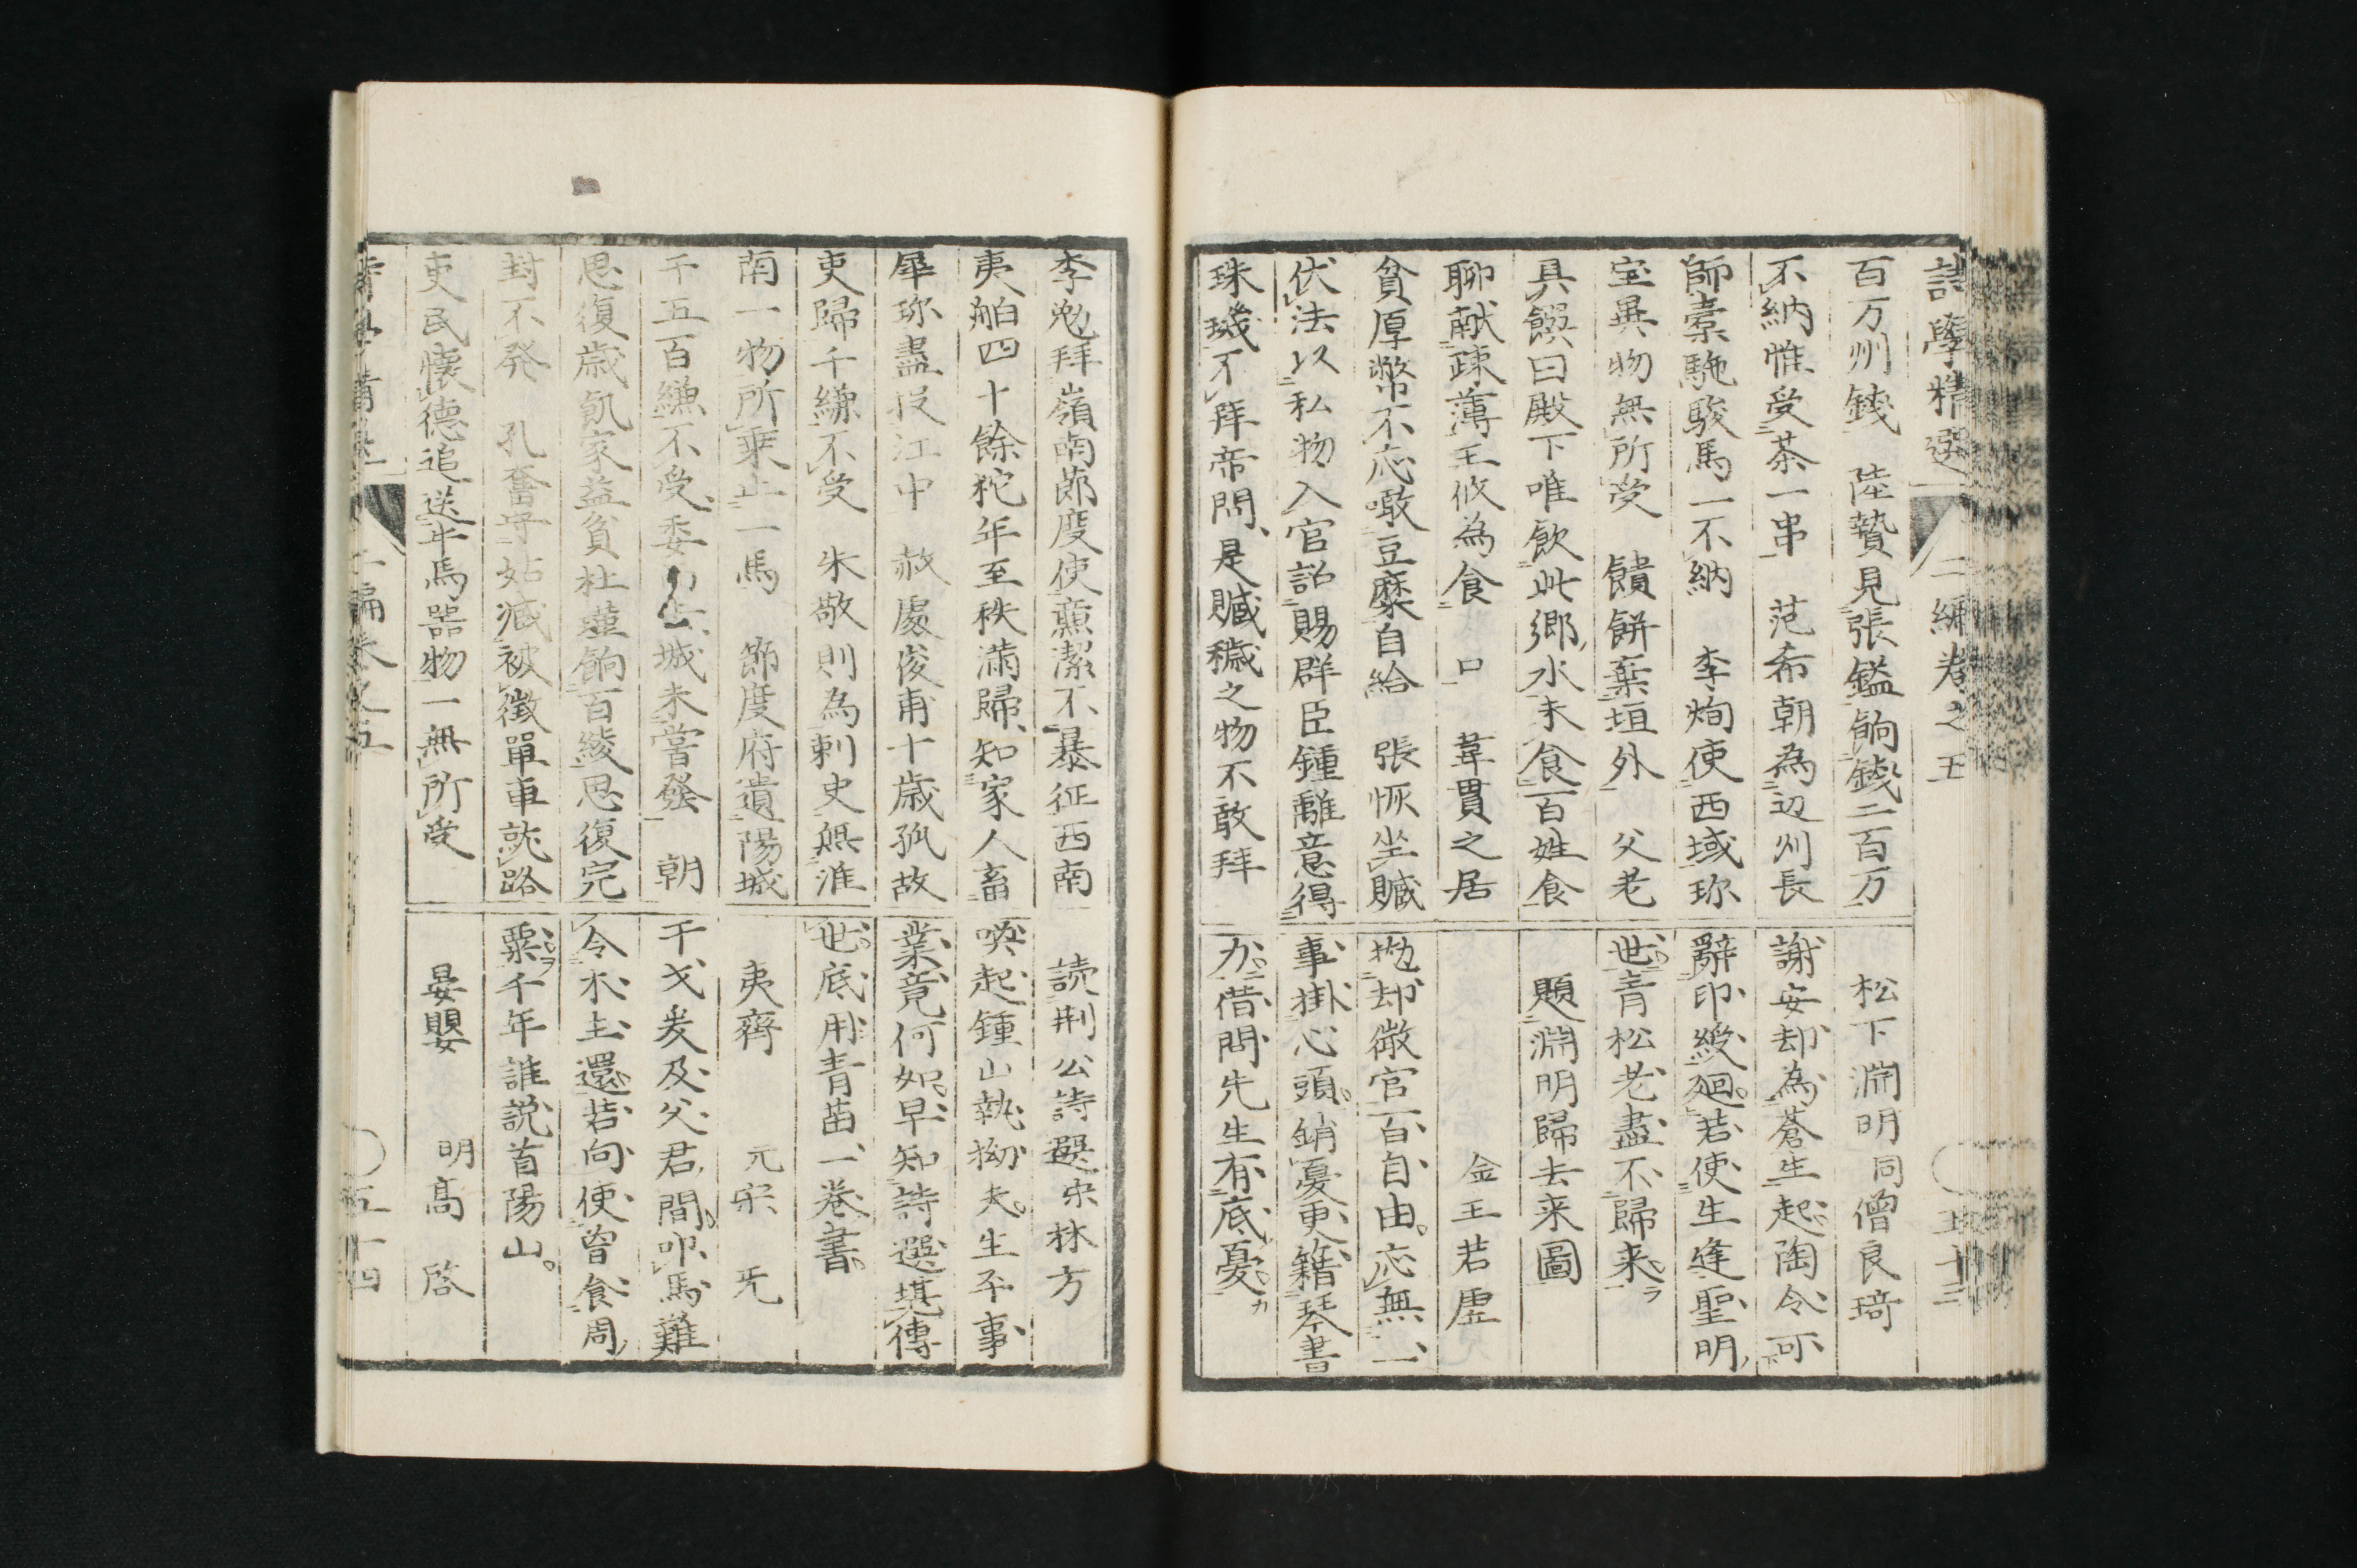 詩學精選 二編卷之五 五十三
百万州銭 陸贄見張鎰餉錢二百万
不納惟受茶一串 范希朝為辺州長
師橐駞駿馬一不納 李炯使西域珎
宝異物無所受 饋餅棄垣外 父老
具饌曰殿下唯飲此郷水未食百姓食
聊献疎薄王攸為食 口 葦貫之居
貧厚幣不応噉豆糜自給 張恢坐贓
伏法以私物入官詔賜群臣鍾離意得
珠璣不拜帝問是贓穢之物不敢拜
松下淵明 同 僧良琦
謝安却為蒼生起陶令可
辭印綬廻若使生逢聖明
世青松老盡不歸来
題淵明歸去来圖
金王若虚
拋却微官百自由応無一
事掛心頭銷憂更籍琴書
力借問先生有底憂
李勉拜嶺南節度使廉潔不暴征西南
夷舶四十餘柁年至秩滿歸知家人畜
犀珎盡投江中 赦處俊甫十歳孤故
吏歸千縑不受 朱敬則為刺史無淮
南一物所乘止一馬 節度府遺陽城
千五百縑不受委 城未嘗發 朝
思復歳飢家益貧杜瑾餉百綾思復完
封不発 孔奮守姑臧被徵單車就路
吏民懐德追送牛馬器物一無所受
読荆公詩選 宋林方
喚起鍾山執拗夫生平事
業竟何如早知詩選堪傳
世底用青苗一巻書
夷齊 元宋旡
干戈爰及父君間叩馬難
令木主還若向使曽食周
粟千年誰説首陽山
晏嬰 明高啓
詩學精選 二編巻之五 五十四